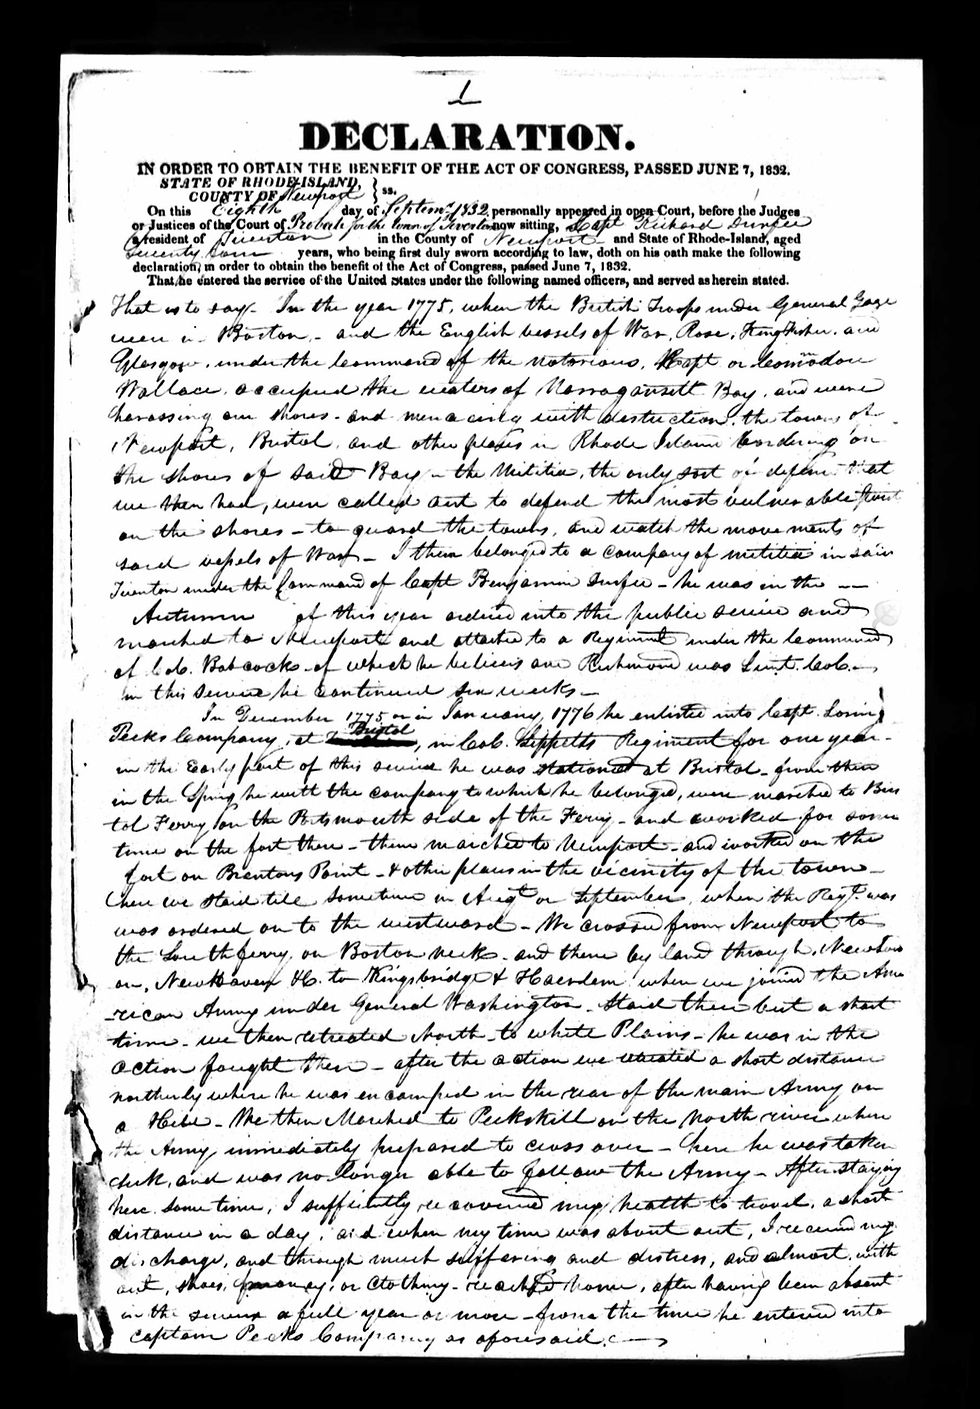 1
DECLARATION.
IN ORDER TO OBTAIN THE BENEFIT OF THE ACT OF CONGRESS, PASSED JUNE 7, 1832.
STATE OF RHODE-ISLAND,
COUNTY OF Newport } ss.
On this Eighth day of Septemr. 1832, personally appeared in open Court, before the Judges
or Justices of the Court of Probate for the town of Tiverton now sitting, Capt Richard Durfee
a resident of Tiverton in the County of Newport and State of Rhode-Island, aged
Seventy four years, who being first duly sworn according to law, doth on his oath make the following
declaration, in order to obtain the benefit of the Act of Congress, passed June 7, 1832.
That he entered the service of the United States under the following named officers, and served as herein stated.
That is to say - In the year 1775, when the British Troops under General Gage
were in Boston, - and the English vessels of War, Rose, King Fisher, and
Glasgow, under the Command of the notorious, Capt or Commodore
Wallace, occupied the waters of Narragansett Bay, and were
harassing our shores - and menacing with destruction, the towns of
Newport, Bristol, and other places in Rhode Island bordering on
the shores of said Bay - the Militia, the only sort of defence that
we then had, were called out to defend the most vulnerable point
on the shores - to guard the towns, and watch the movements of
said vessels of War - I then belonged to a company of militia in said
Tiverton under the Command of Capt Benjamin Durfee - he was in the --
Autumn of this year ordered into the public service and
marched to Newport and attached to a Regiment under the Command
of Col. Babcocks - of which he believes one Richmond was Lieut. Col. -
In this service he continued six weeks -
In December 1775 or in January, 1776 he enlisted into Capt. Loring
Pecks Company, at Bristol, in Col. Lippetts Regiment for one year -
in the Early part of this service he was stationed at Bristol - from then
in the Spring he with the company to which he belonged, were marched to Bris
tol Ferry on the Portsmouth side of the Ferry - and worked for some
time on the fort there - then marched to Newport - and worked on the
fort on Brentons Point - & other places in the vicinity of the town -
here we staid till sometime in Augt or September, when the Regt. was
was ordered on to the westward - We crossed from Newport to
the South ferry, on Boston neck - and there by land through, New
on, New Haven &c. to Kingsbridge & Haerlem when we joined the Ame
rican Army under General Washington - Staid there but a short
time - we then retreated North to White Plains - he was in the
action fought there - after the action we a short distance
northerly where he was encamped in the rear of the main Army on
a Hill - We then Marched to Peekskill on the North river where
the Army immediately prepared to cross over - here he was taken
sick, and was no longer able to follow the Army - After staying
here some time, I sufficiently recovered my health to travel, a short
distance in a day, and when my time was about out, I received my
discharge, and through much suffering and distress, and almost with
out, shoes, money, or Clothing - reached home, after having been absent
in the service a full year or more - from the time he entered into
Captain Pecks Company as aforesaid. -